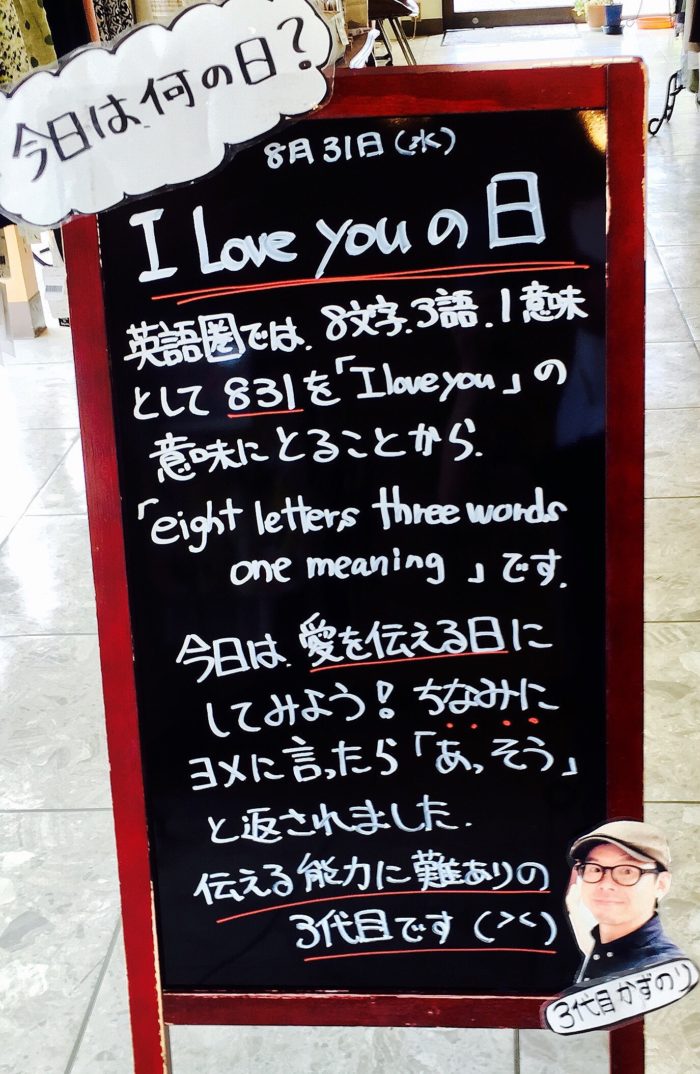 今日は何の日?
8月31日(水)
I Love youの日
英語圏では、8文字、3語、1意味
として831を「I love you」の
意味にとることから、
「eight letters three words
one meaning」です.
今日は、愛を伝える日に
してみよう! ちなみに
ヨメに言ったら「あっそう」
と返されました.
伝える能力に難ありの
3代目です(><)
3代目かずのり